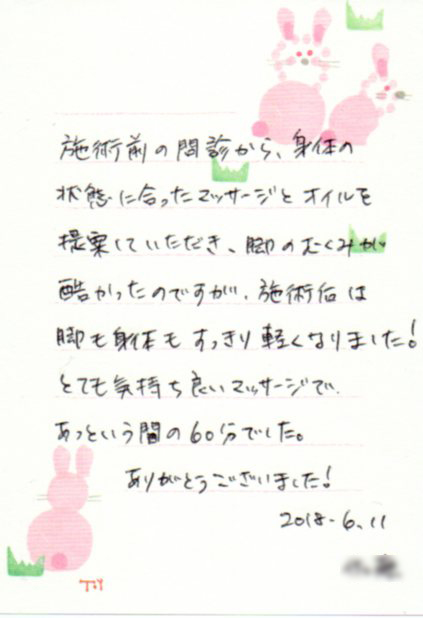 施術前の問診から、身体の
状態に合ったマッサージとオイルを
提案していただき、脚のむくみが
酷かったのですが、施術后は
脚も身体もすっきり軽くなりました!
とても気持ち良いマッサージで、
あっという間の60分でした。
ありがとうございました!
2018-6.11